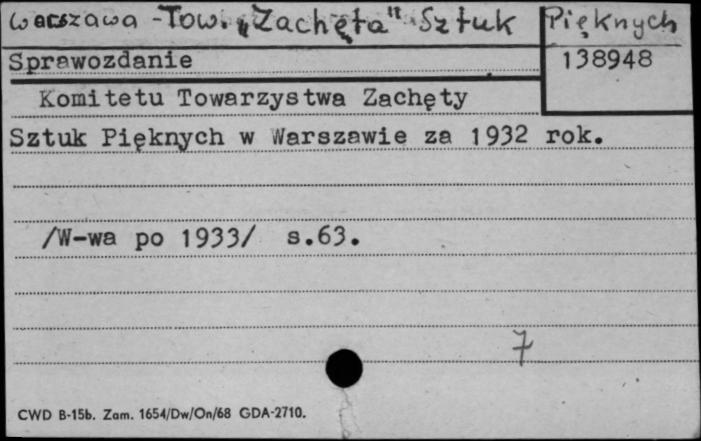 Warszawa - Tow. „Zachęta" Sztuk Pięknych
Sprawozdanie
138948
Komitetu Towarzystwa Zachęty
Sztuk Pięknych w Warszawie za 1932 rok.
/W-wa po 1933/ s.63.
7
CWD B-15b. Zam. 1654/Dw/On/68 GDA-2710.